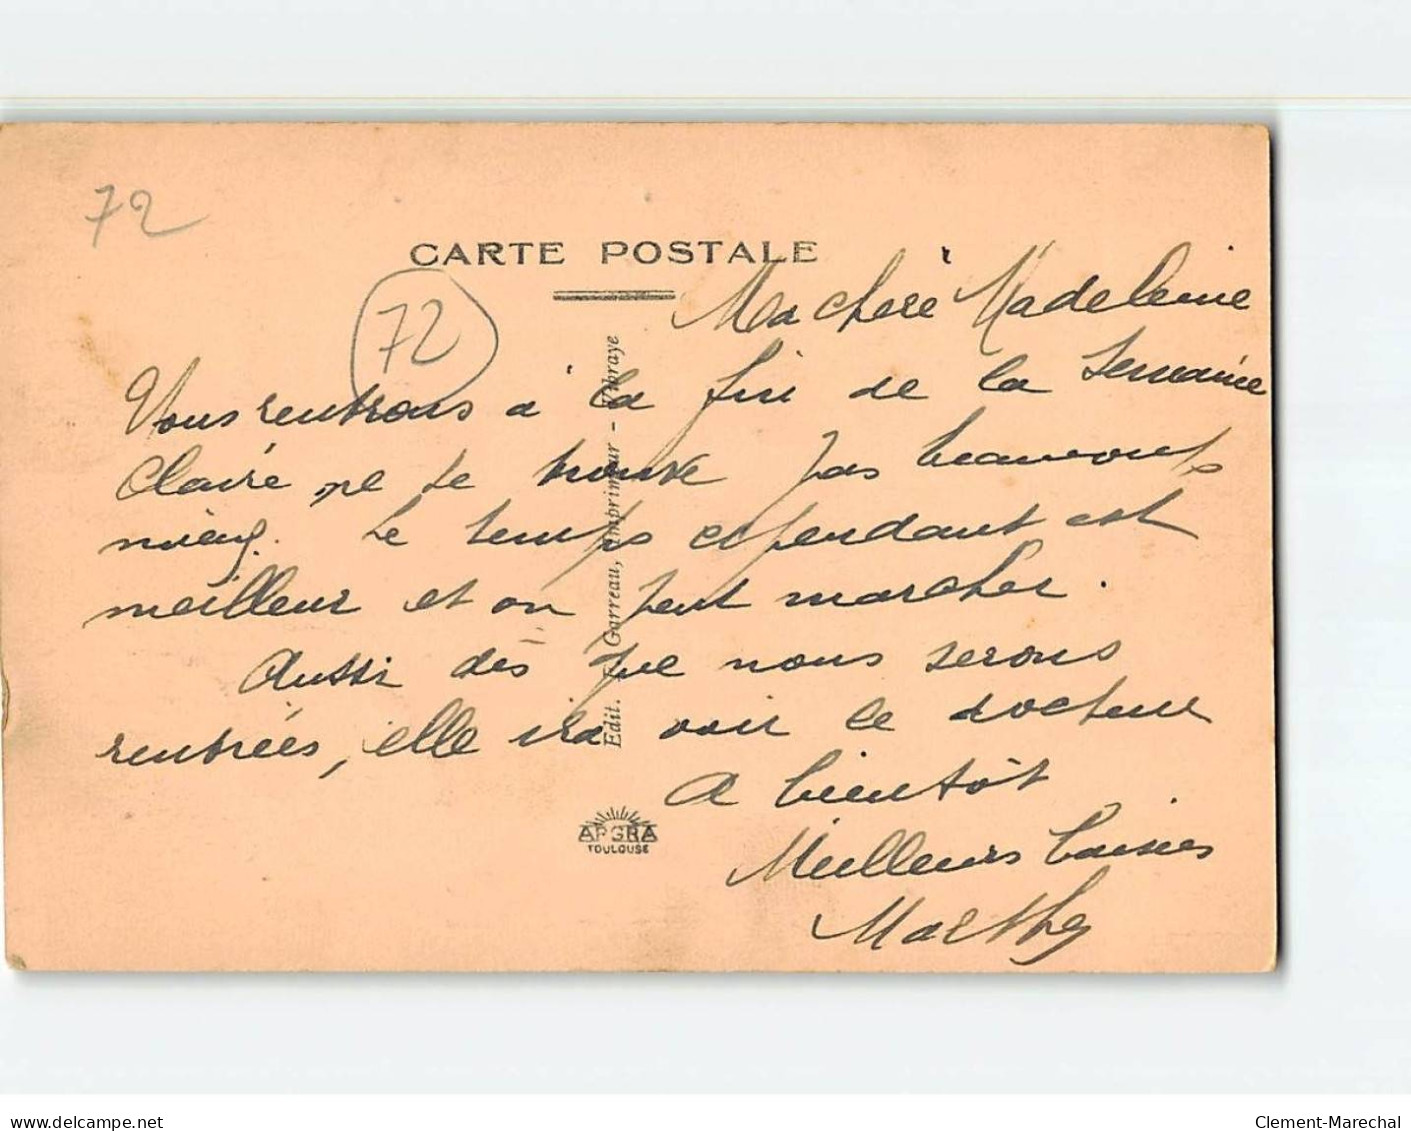 72
CARTE POSTALE
72
Ma chère Madeleine
Nous rentrons à la fin de la semaine
Claire ne se trouve pas beaucoup
mieux. Le temps cependant est
meilleur et on peut marcher.
Aussi dès que nous serons
rentrées, elle ira voir le docteur
A bientôt
Meilleurs baisers
Marthe
Edit. Garreau, Imprimeur - Vibraye
APGRA
TOULOUSE
delcampe.net
Clement-Marechal